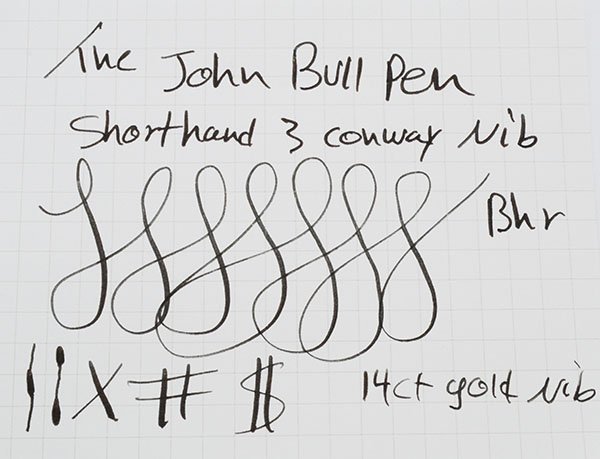 The John Bull Pen
Shorthand 3 conway Nib
Bhr
X # $
14ct gold Nib